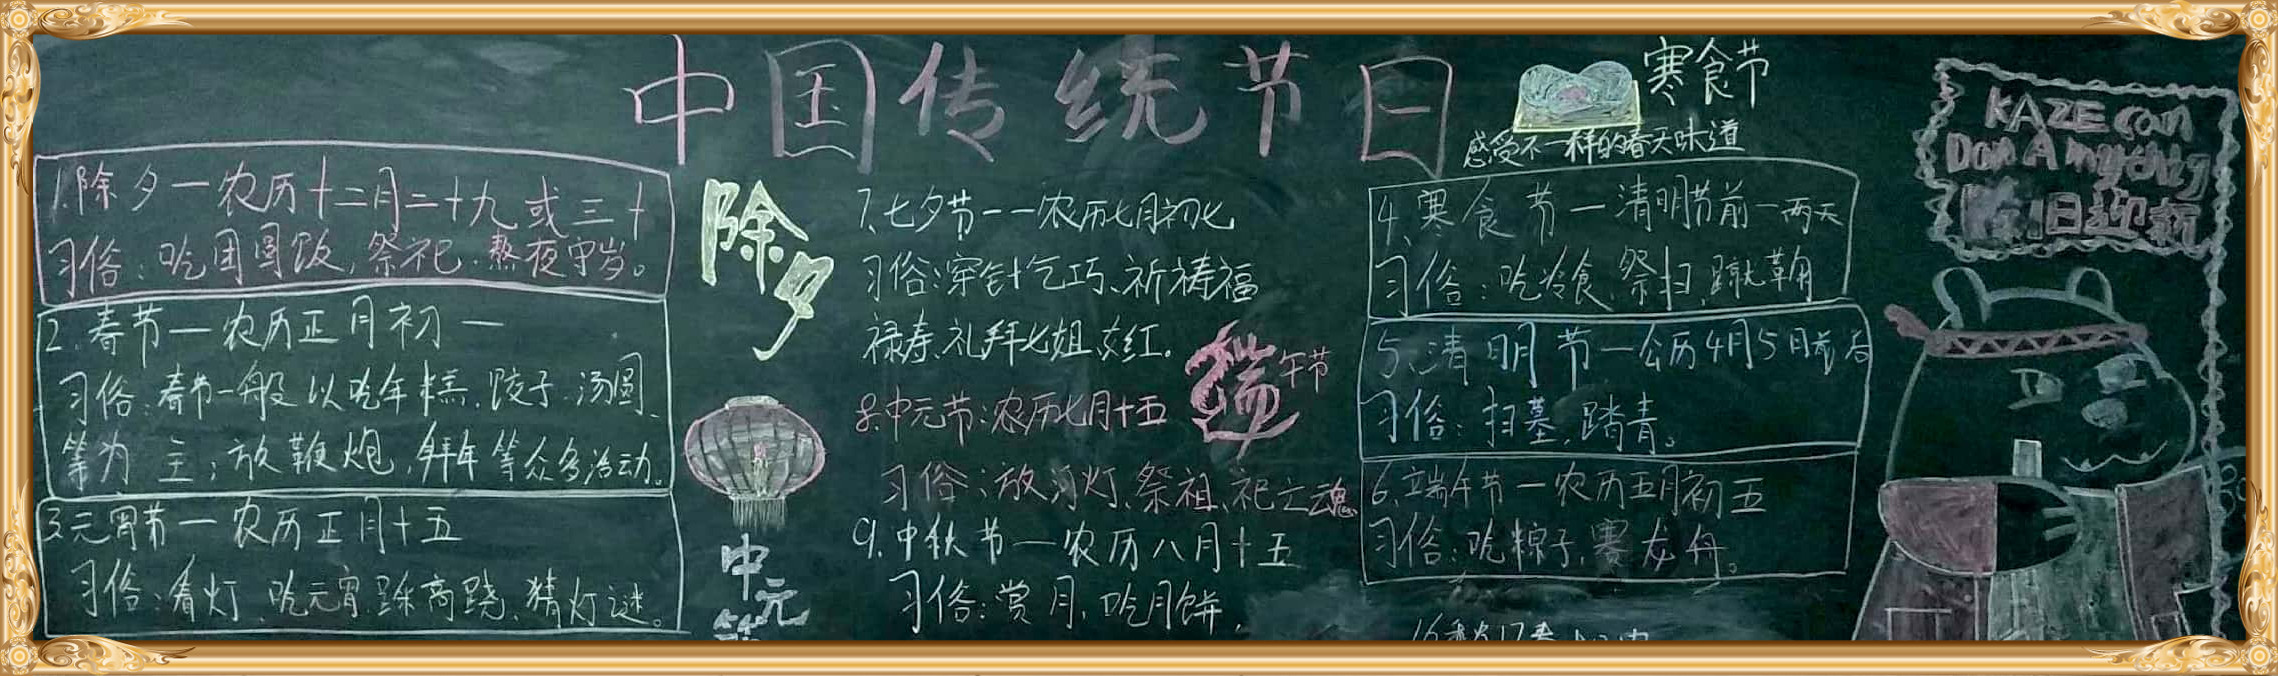 中国传统节日
寒食节
感受不一样的春天味道
KAZE can
Don A
旧迎新
1.除夕一农历十二月二十九或三十
习俗:吃团圆饭,祭祀.熬夜守岁。
2.春节一农历正月初一
习俗:春节一般以吃年糕.饺子.汤圆、
等为主;放鞭炮,拜年等众多活动。
3.元宵节一农历正月十五
习俗:看灯.吃元宵.踩高跷、猜灯谜。
除夕
中元
7.七夕节一一农历七月初七
习俗:穿针乞巧、祈祷福
禄寿、礼拜七姐、红。
端午节
8.中元节:农历七月十五
习俗:放河灯、祭祖、祀亡魂
9.中秋节一农历八月十五
习俗:赏月,吃月饼,
4.寒食节一清明节前一两天
习俗:吃冷食.祭扫.蹴鞠
5.清明节一公历4月5日前后
习俗:扫墓,踏青。
6.端午节一农历五月初五
习俗:吃粽子,赛龙舟。